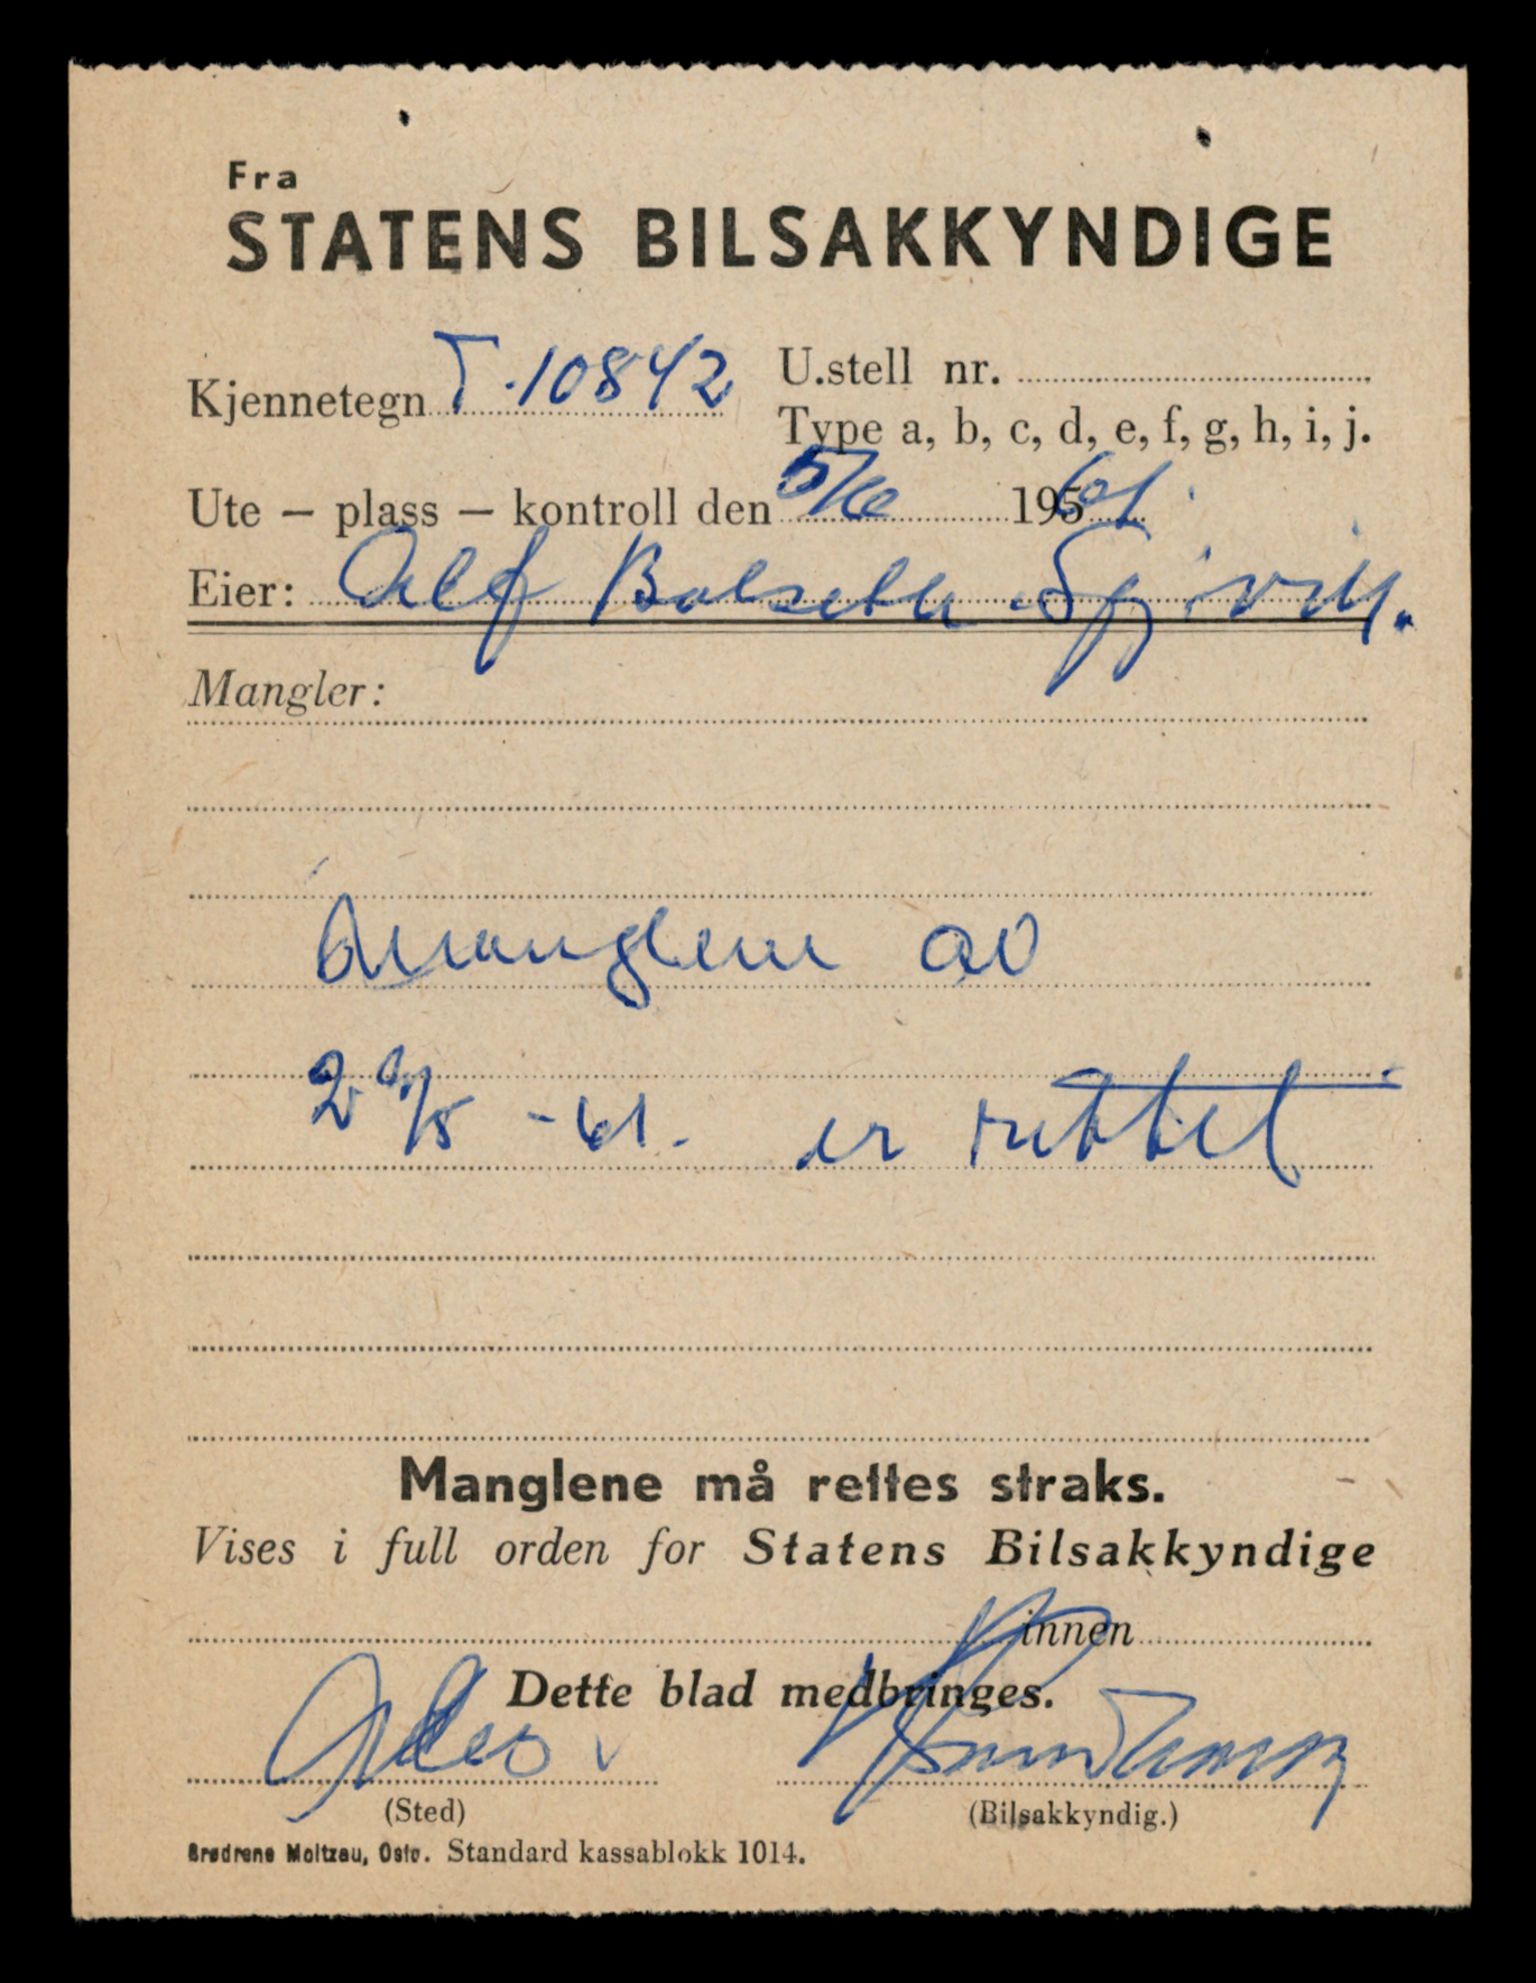 Fra
STATENS BILSAKKYNDIGE
Kjennetegn T-10842
U.stell nr.
Type a, b, c, d, e, f, g, h, i, j.
Ute – plass – kontroll den 5/6 1961.
Eier: Alf
Mangler:
Manglene av
29/5 -61. er rettet
Manglene må rettes straks.
Vises i full orden for Statens Bilsakkyndige
innen
Dette blad medbringes.
(Sted) (Bilsakkyndig.)
Brødrene Moltzau, Oslo. Standard kassablokk 1014.